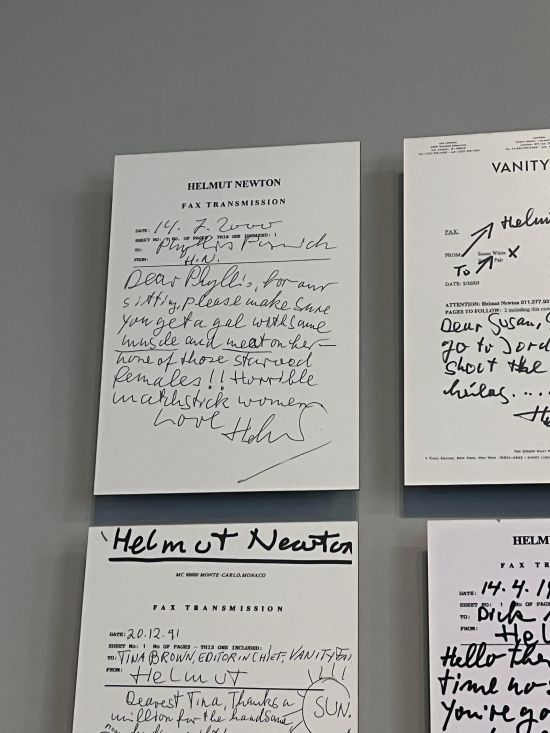 HELMUT NEWTON
FAX TRANSMISSION
DATE: 14. 7. 2000
SHEET NO: 1 NO. OF PAGES - THIS ONE INCLUDED: 1
TO: Phyllis
FROM: H.N.
Dear Phyllis, for our
sitting, please make sure
you get a gal with some
muscle and meat on her –
none of those starved
females!! Horrible
matchstick women
Love Helmut
VANITY
FAX:
Helmu
FROM: Susan White X
Fair
TO
DATE: 5/30/03
ATTENTION: Helmut Newton 011.377.93
PAGES TO FOLLOW: 2 including this cov
Dear Susan,
go to Jord
shoot the
Helmut Newton
MC 98000 MONTE-CARLO, MONACO
FAX TRANSMISSION
DATE: 20.12.91
SHEET NO: 1 NO OF PAGES - THIS ONE INCLUDED:
TO: TINA BROWN, EDITOR IN CHIEF, VANITY FAIR
FROM: Helmut
Dearest Tina, Thanks a
million for the handsome
SUN.
HELM
FAX TR
DATE: 14. 4. 1
SHEET NO: 1
TO: Dick
FROM: Hel
Hello the
time no s
You're go